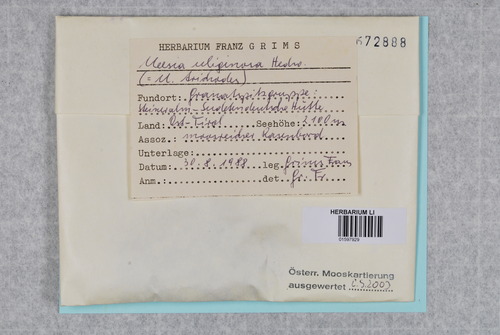 672888
HERBARIUM FRANZ GRIMS
Meesea uliginosa Hedw.
(= M. trichodes)
Fundort: Granatspitzgruppe:
Steineralm - Sudetendeutsche Hütte
Land: Ost-Tirol Seehöhe: 2100 m
Assoz.: moosreicher Rasenbord
Unterlage:
Datum: 30.8.1988 leg. Grims Franz
Anm.: det. Gr. Fr.
HERBARIUM LI
01597929
Österr. Mooskartierung
ausgewertet 2.5.2007